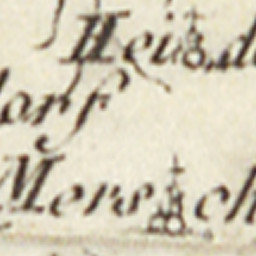 Heisd
dorf
Mersch